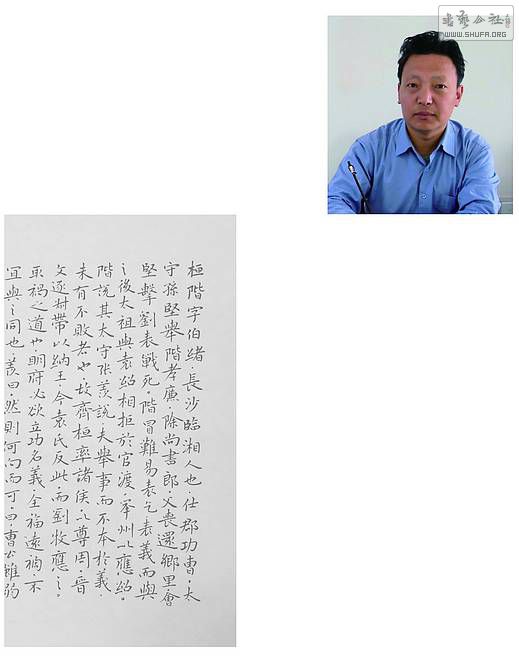 書藝公社
WWW.SHUFA.ORG
桓階字伯緒·長沙臨湘人也·仕郡功曹·太
守孫堅舉階孝廉·除尚書郎·父喪還鄉里·會
堅擊劉表戰死·階冒難易表乞·表義而與
之後太祖與袁紹相拒於官渡·率州以應紹·
階說其太守張羨說·夫舉事而不本於義·
未有不敗者也·故齊桓率諸侯以尊周·晉
文逐封帶以納王·今袁氏反此·而劉牧應之·
取禍之道也明府必欲立功名義全福遠禍不
宜與之同也·羨曰·然則何向而可·曰·曹公雖弱